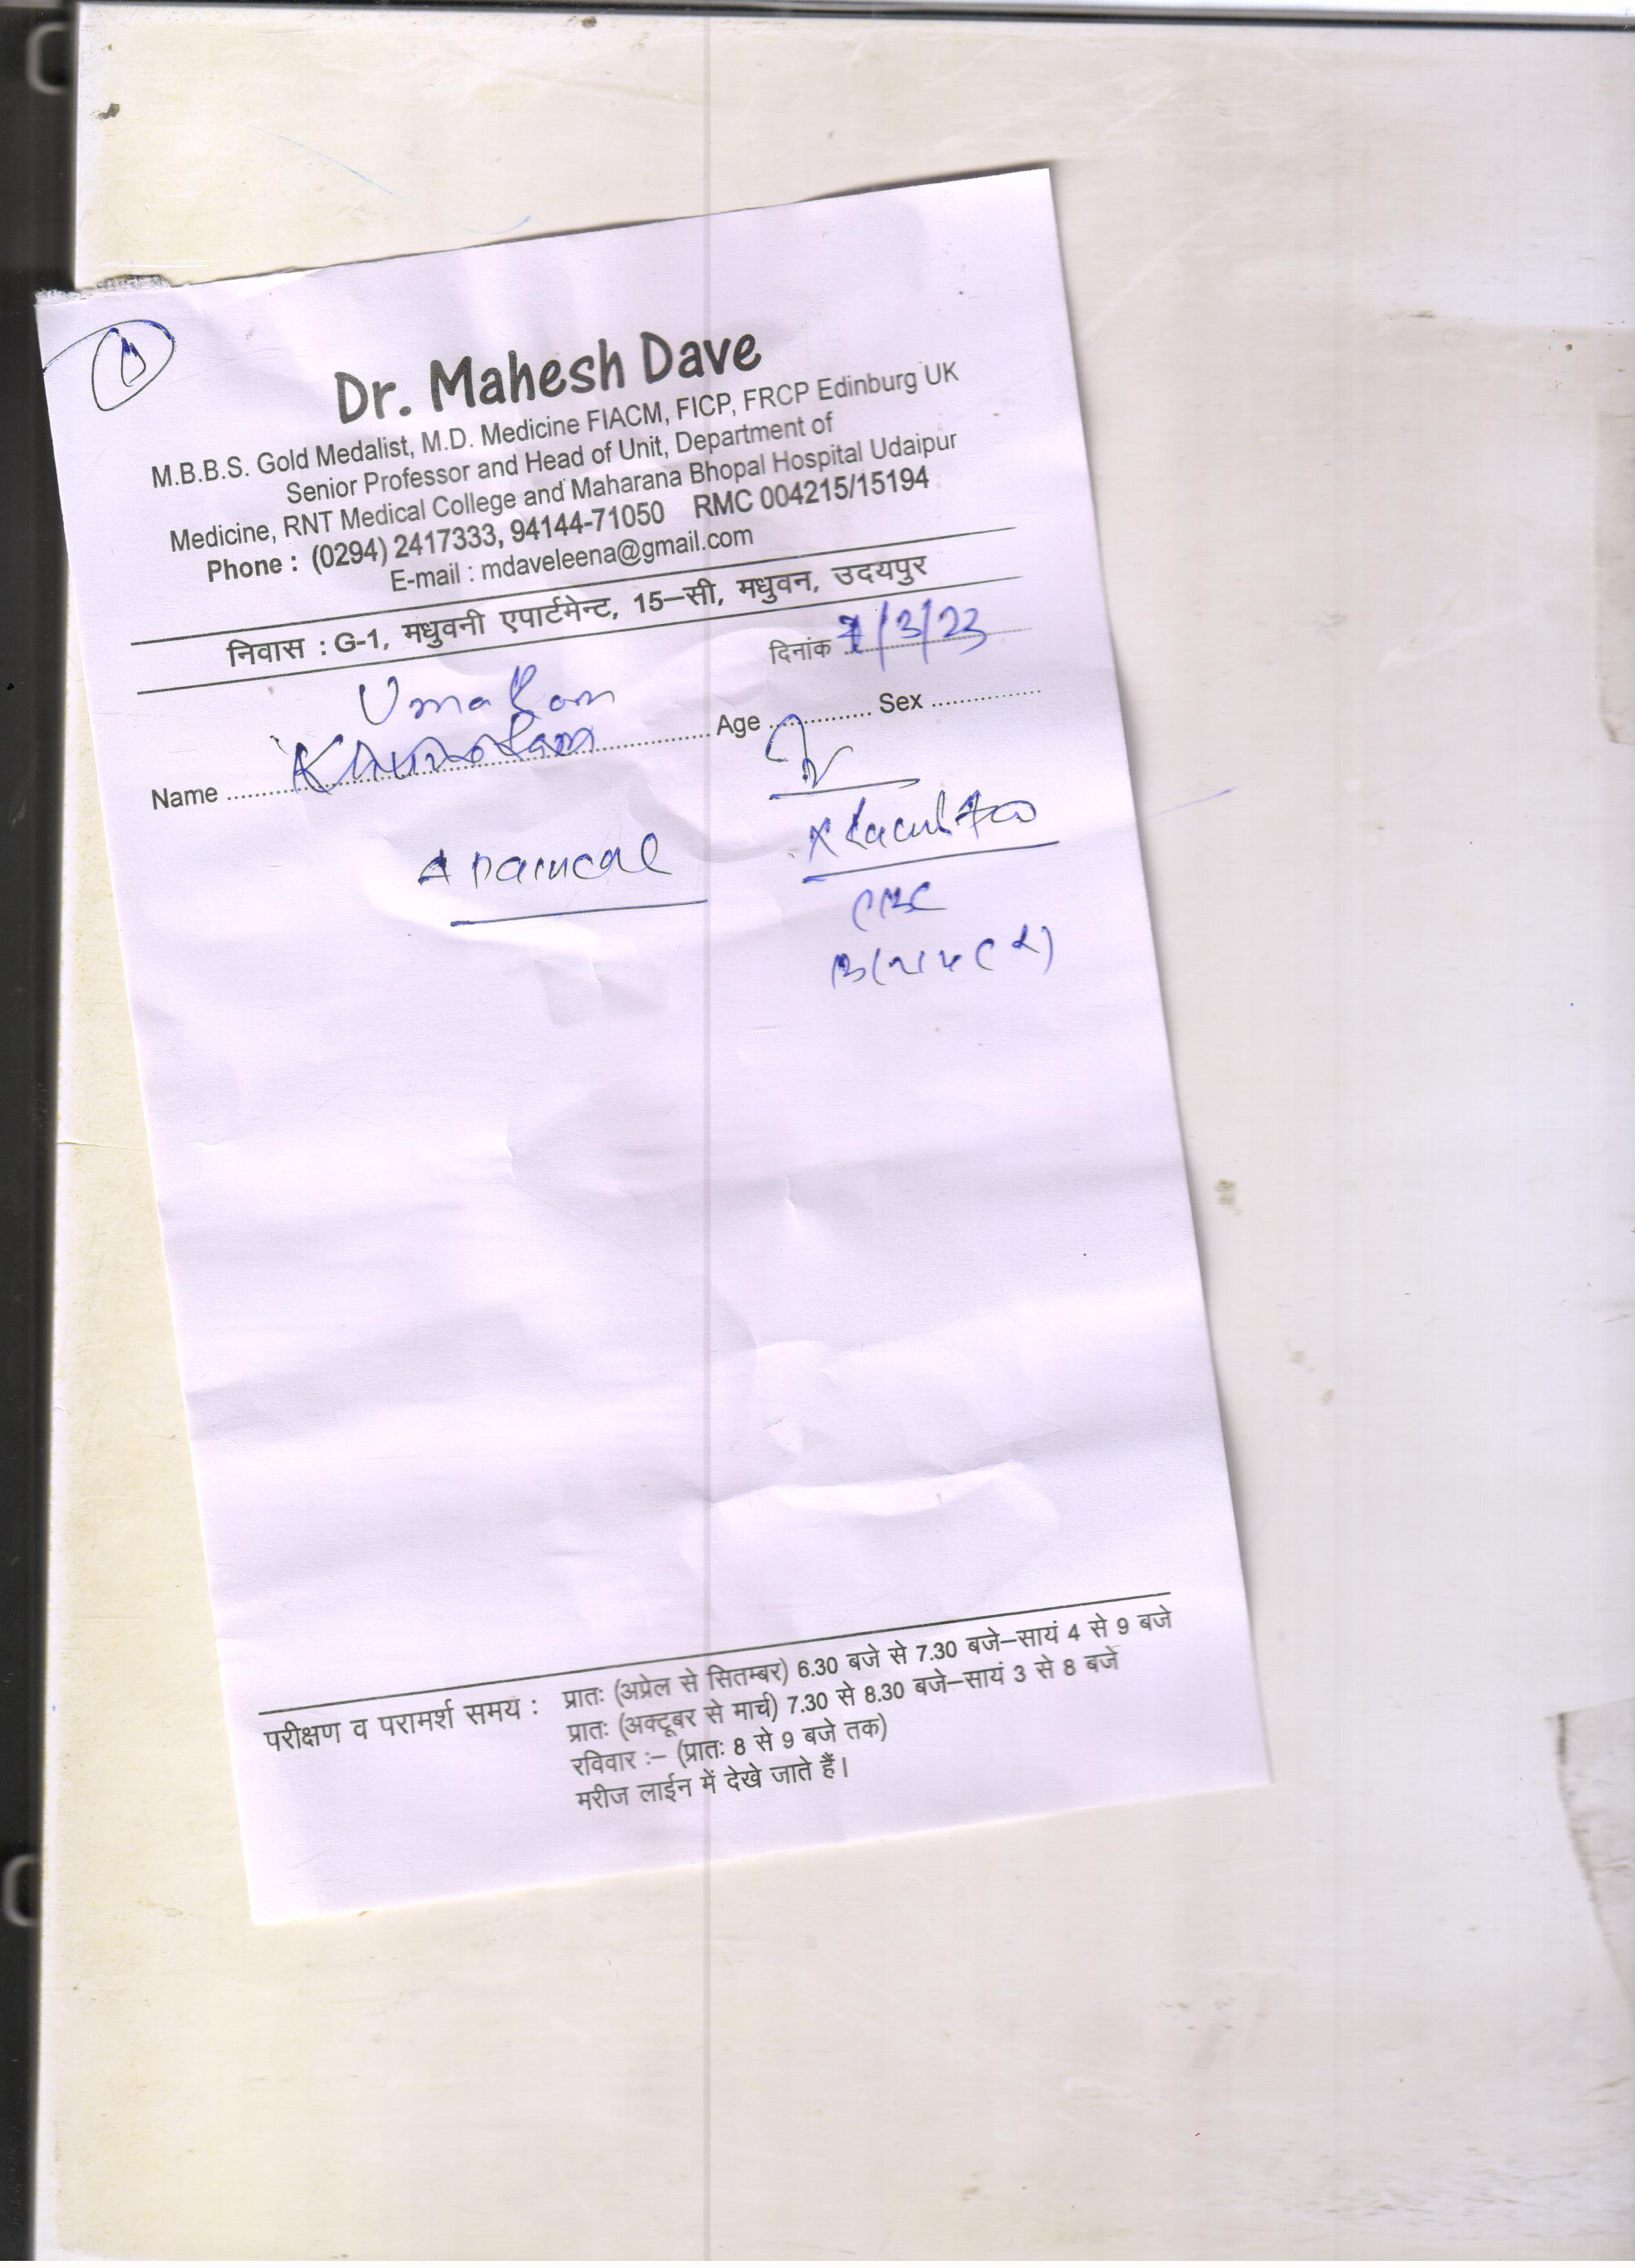 Dr. Mahesh Dave
M.B.B.S. Gold Medalist, M.D. Medicine FIACM, FICP, FRCP Edinburg UK
Senior Professor and Head of Unit, Department of
Medicine, RNT Medical College and Maharana Bhopal Hospital Udaipur
Phone : (0294) 2417333, 94144-71050 RMC 004215/15194
E-mail : mdaveleena@gmail.com
निवास : G-1, मधुवनी एपार्टमेन्ट, 15–सी, मधुवन, उदयपुर
दिनांक 7/3/23
Umaram
Name Age Sex
CBC
परीक्षण व परामर्श समय : प्रातः (अप्रेल से सितम्बर) 6.30 बजे से 7.30 बजे–सायं 4 से 9 बजे
प्रातः (अक्टूबर से मार्च) 7.30 से 8.30 बजे–सायं 3 से 8 बजे
रविवार :– (प्रातः 8 से 9 बजे तक)
मरीज लाईन में देखे जाते हैं।